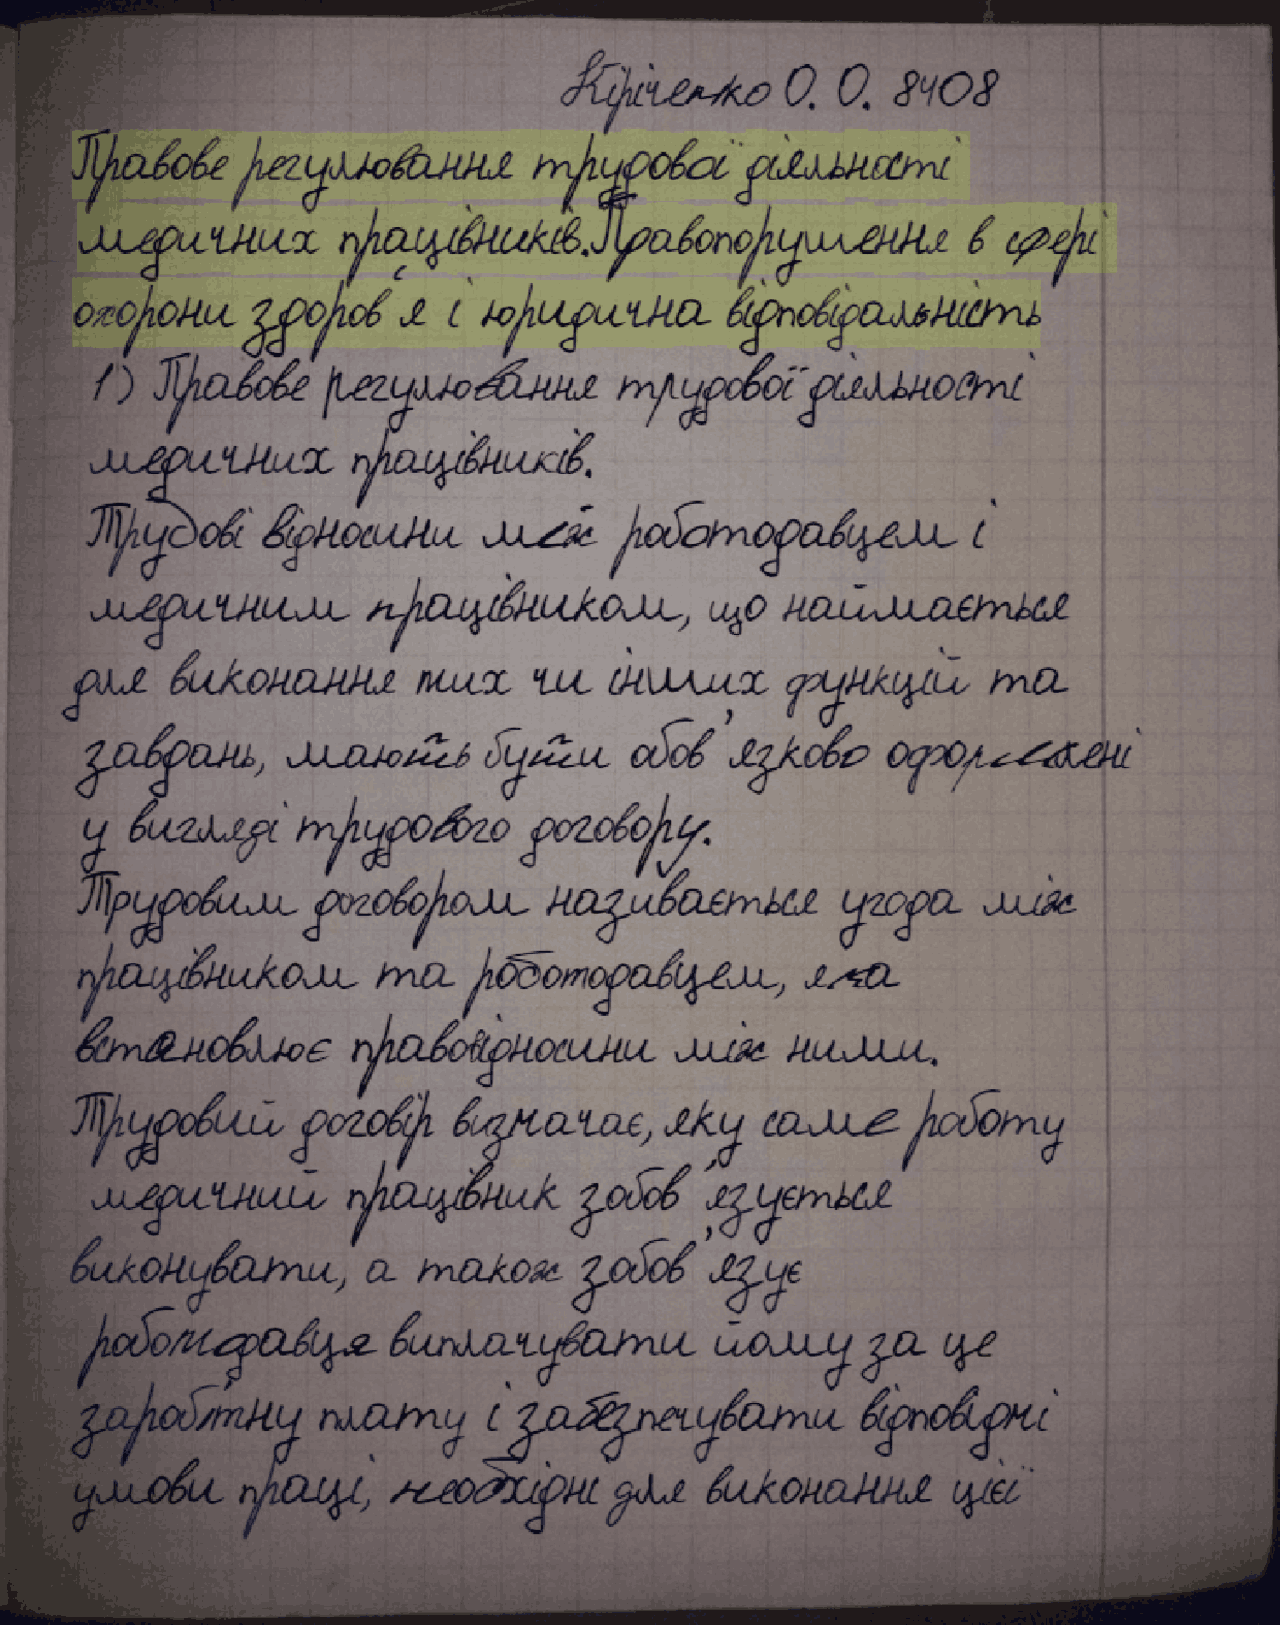 Кіріченко О. О. 8408
Правове регулювання трудової діяльності
медичних працівників. Правопорушення в сфері
охорони здоров'я і юридична відповідальність
1) Правове регулювання трудової діяльності
медичних працівників.
Трудові відносини між роботодавцем і
медичним працівником, що наймається
для виконання тих чи інших функцій та
завдань, мають бути обов'язково оформлені
у вигляді трудового договору.
Трудовим договором називається угода між
працівником та роботодавцем, яка
встановлює правовідносини між ними.
Трудовий договір визначає, яку саме роботу
медичний працівник зобов'язується
виконувати, а також зобов'язує
роботодавця виплачувати йому за це
заробітну плату і забезпечувати відповідні
умови праці, необхідні для виконання цієї